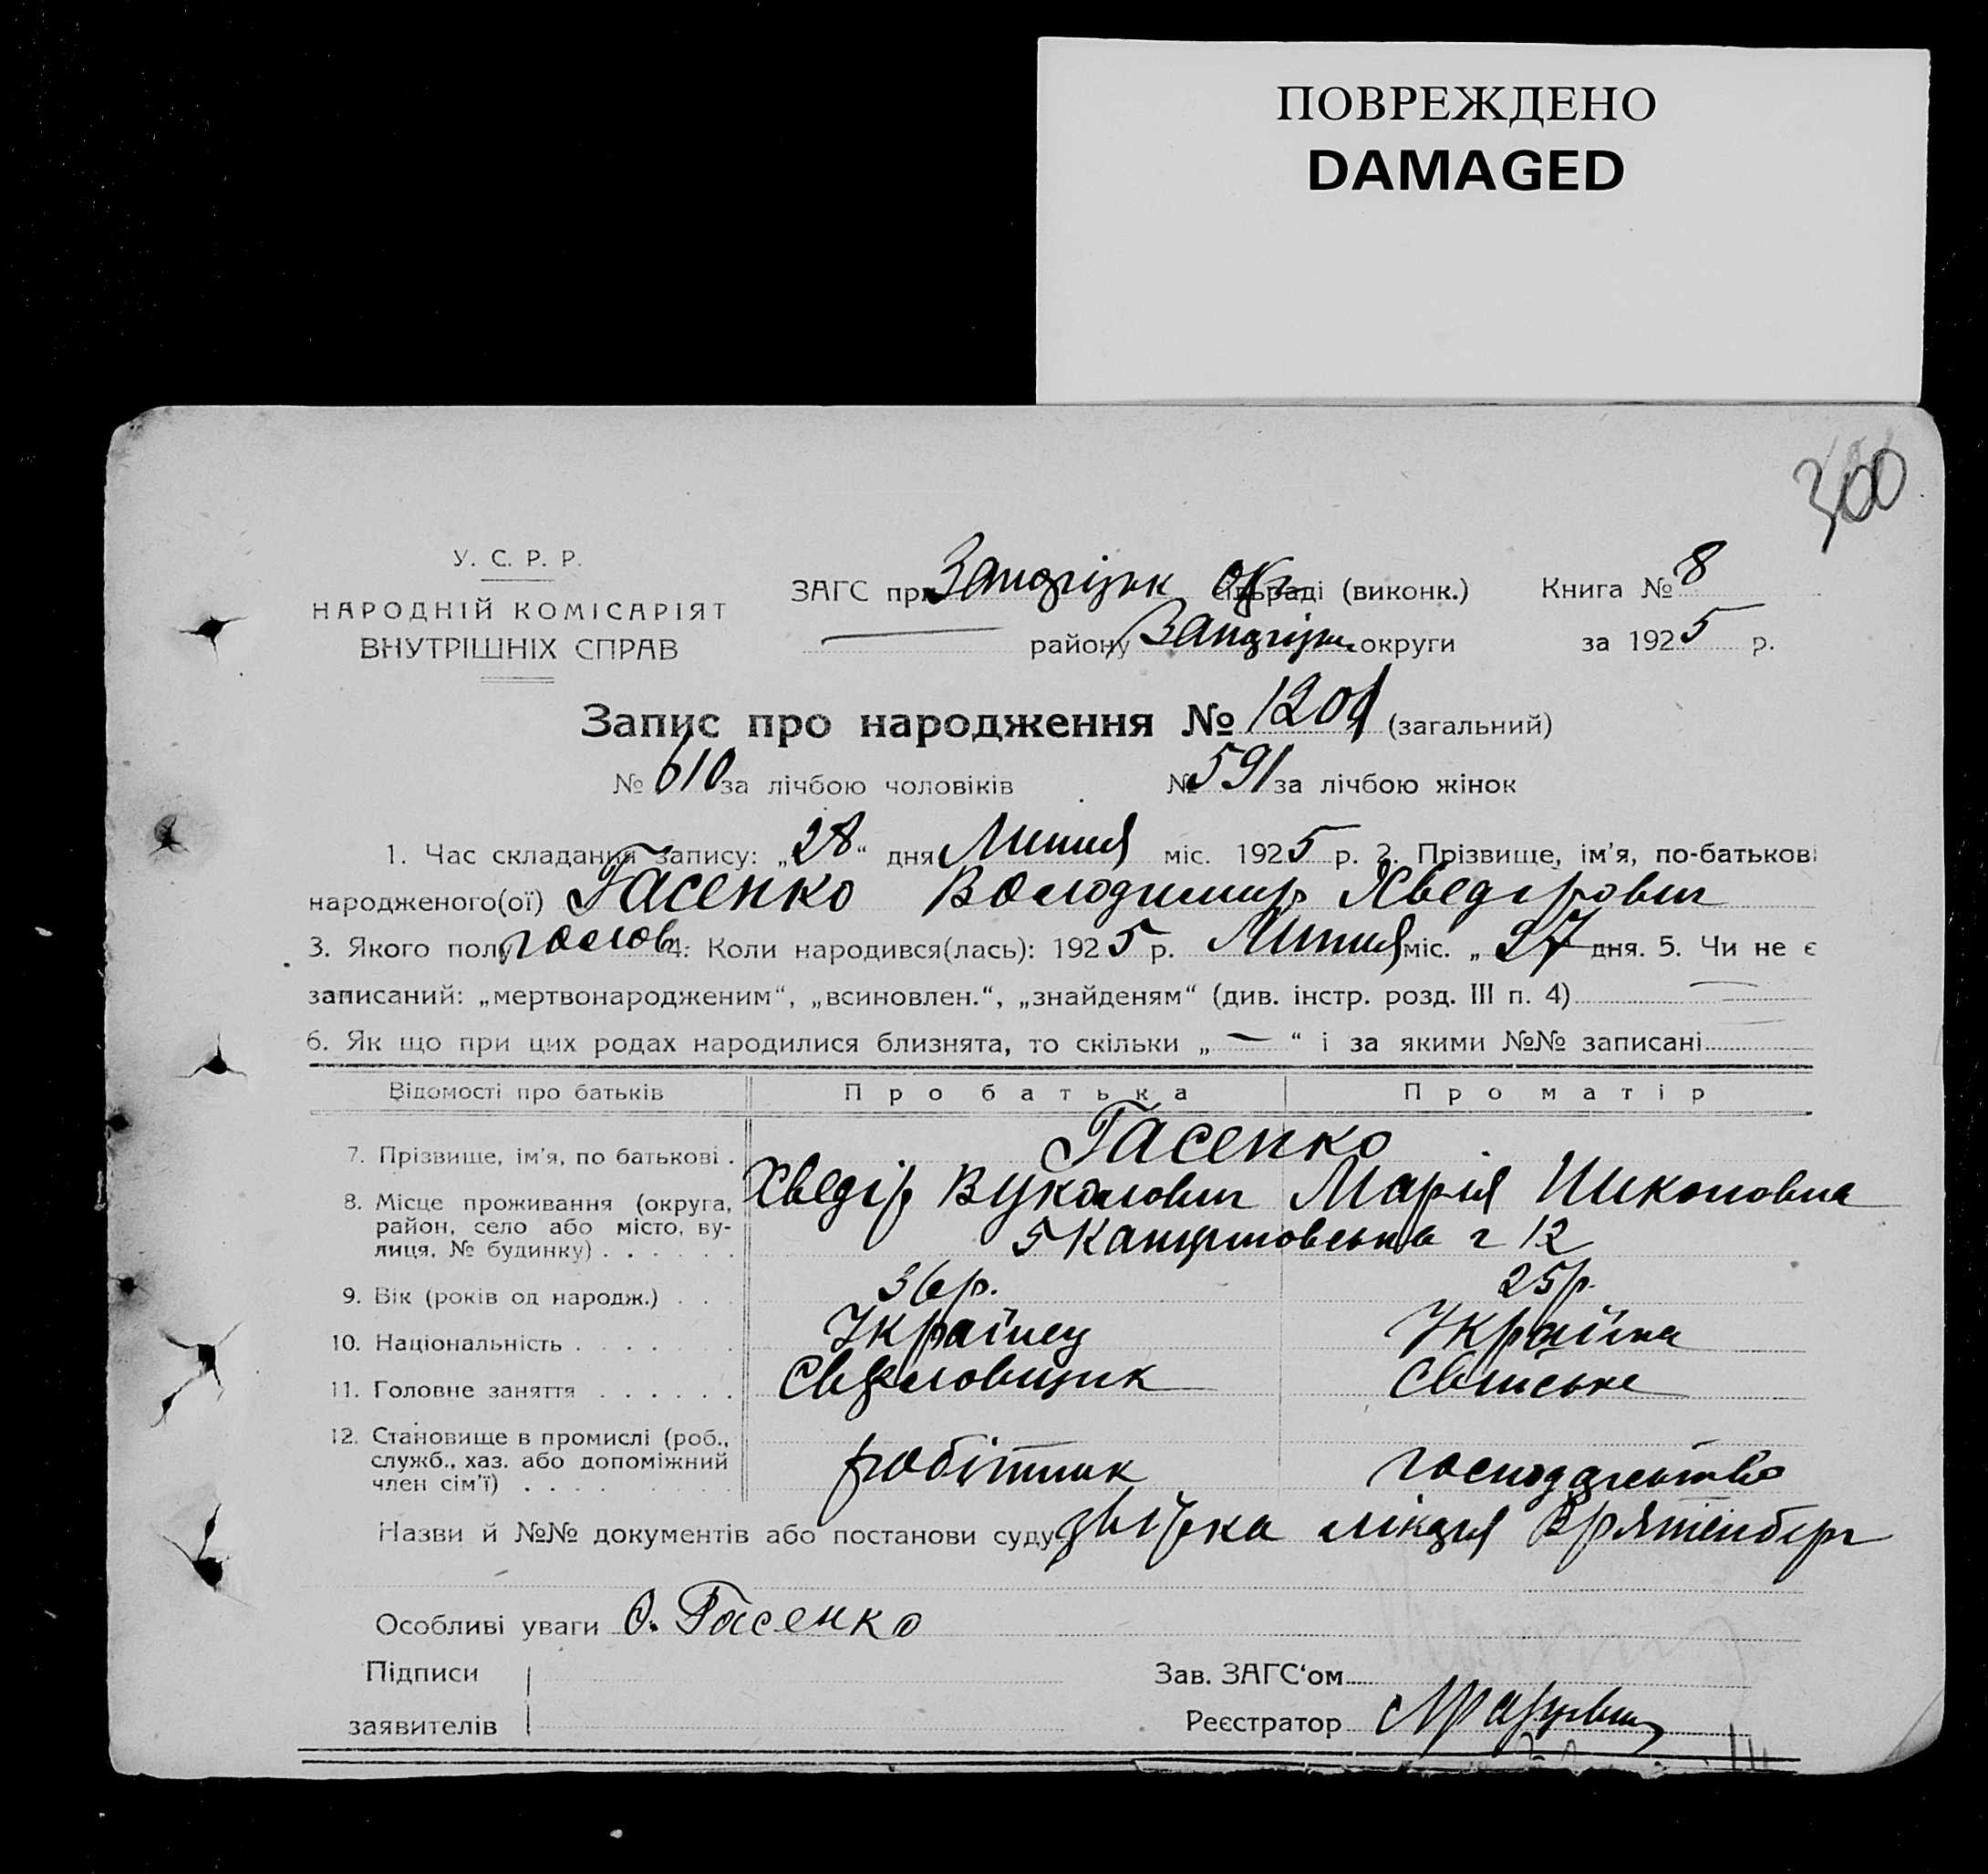 ПОВРЕЖДЕНО
DAMAGED
300
У. С. Р. Р.
НАРОДНІЙ КОМІСАРІЯТ
ВНУТРІШНІХ СПРАВ
ЗАГС при Запоріжж окр сільраді (виконк.) Книга № 8
району Запоріжж округи за 1925 р.
Запис про народження № 1201 (загальний)
№ 610 за лічбою чоловіків № 591 за лічбою жінок
1. Час складання запису: „28“ дня Липня міс. 1925 р. 2. Прізвище, ім'я, по-батькові
народженого(ої) Гасенко Володимир Хведорович
3. Якого полу чолов. 4. Коли народився(лась): 1925 р. Липня міс. „27 дня. 5. Чи не є
записаний: „мертвонародженим“, „всиновлен.“, „знайденям“ (див. інстр. розд. III п. 4)
6. Як що при цих родах народилися близнята, то скільки „—“ і за якими №№ записані
Відомості про батьків Про батька Про матір
7. Прізвище, ім'я, по батькові . Гасенко
Хведір Вуколович Марія Никоновна
8. Місце проживання (округа,
район, село або місто, ву-
лиця, № будинку) . . . . . . 12
9. Вік (років од народж.) . . . 36 р. 25 р.
10. Національність . . . . . . . Українец Україна
11. Головне заняття . . . . . .
12. Становище в промислі (роб.,
служб., хаз. або допоміжний
член сім'ї) . . . . робітник господарство
Назви й №№ документів або постанови суду
Особливі уваги О. Гасенко
Підписи
заявителів
Зав. ЗАГС'ом
Реєстратор